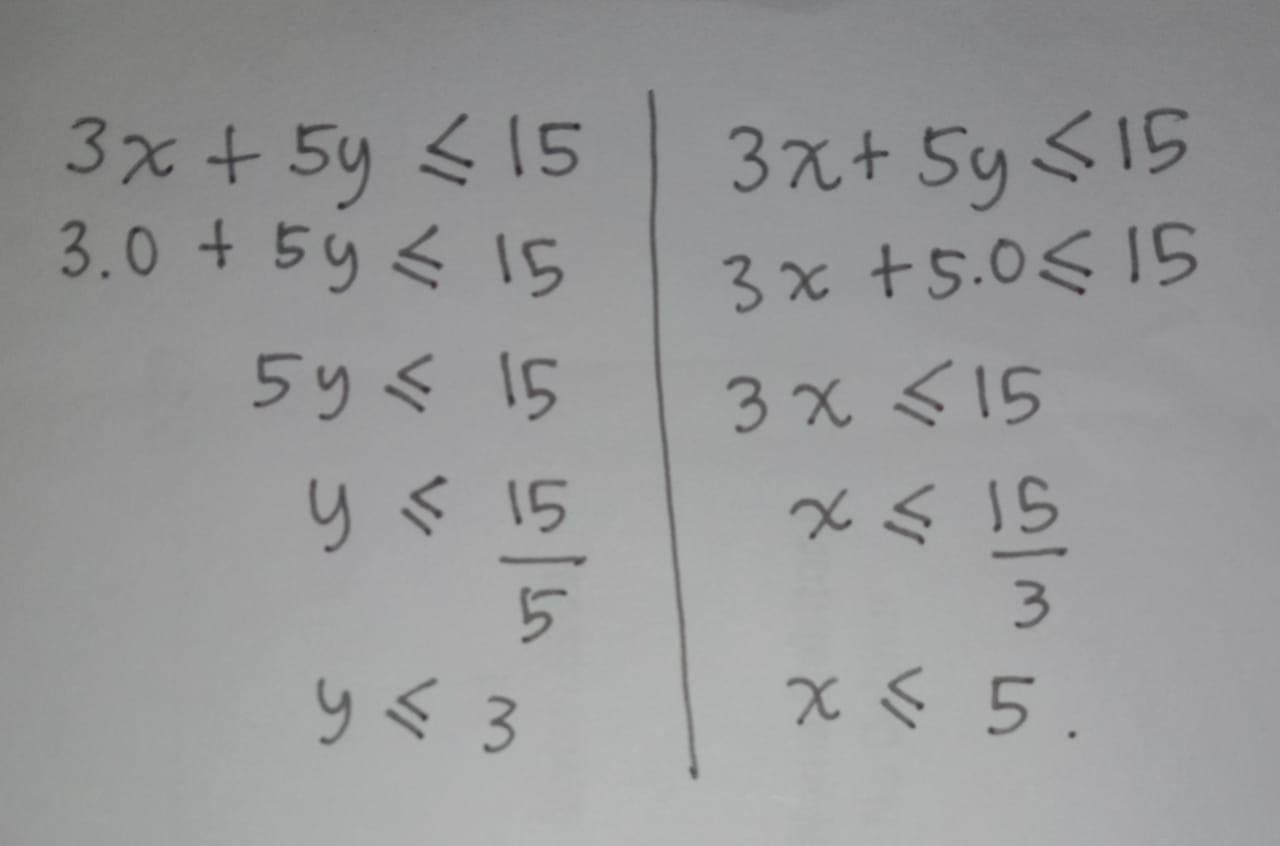 3x + 5y ⩽ 15
3.0 + 5y ⩽ 15
5y ⩽ 15
y ⩽ 15
5
y ⩽ 3
3x + 5y ⩽ 15
3x + 5.0 ⩽ 15
3x ⩽ 15
x ⩽ 15
3
x ⩽ 5.